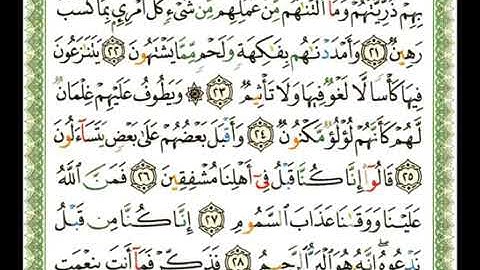 بِهِمْ ذُرِّيَّتَهُمْ وَمَآ أَلَتْنَٰهُم مِّنْ عَمَلِهِم مِّن شَىْءٍ كُلُّ ٱمْرِئٍۭ بِمَا كَسَبَ
رَهِينٌ ٢١ وَأَمْدَدْنَٰهُم بِفَٰكِهَةٍ وَلَحْمٍ مِّمَّا يَشْتَهُونَ ٢٢ يَتَنَٰزَعُونَ
فِيهَا كَأْسًا لَّا لَغْوٌ فِيهَا وَلَا تَأْثِيمٌ ٢٣ ۞ وَيَطُوفُ عَلَيْهِمْ غِلْمَانٌ
لَّهُمْ كَأَنَّهُمْ لُؤْلُؤٌ مَّكْنُونٌ ٢٤ وَأَقْبَلَ بَعْضُهُمْ عَلَىٰ بَعْضٍ يَتَسَآءَلُونَ
٢٥ قَالُوٓا۟ إِنَّا كُنَّا قَبْلُ فِىٓ أَهْلِنَا مُشْفِقِينَ ٢٦ فَمَنَّ ٱللَّهُ
عَلَيْنَا وَوَقَىٰنَا عَذَابَ ٱلسَّمُومِ ٢٧ إِنَّا كُنَّا مِن قَبْلُ
نَدْعُوهُ إِنَّهُۥ هُوَ ٱلْبَرُّ ٱلرَّحِيمُ ٢٨ فَذَكِّرْ فَمَآ أَنتَ بِنِعْمَتِ